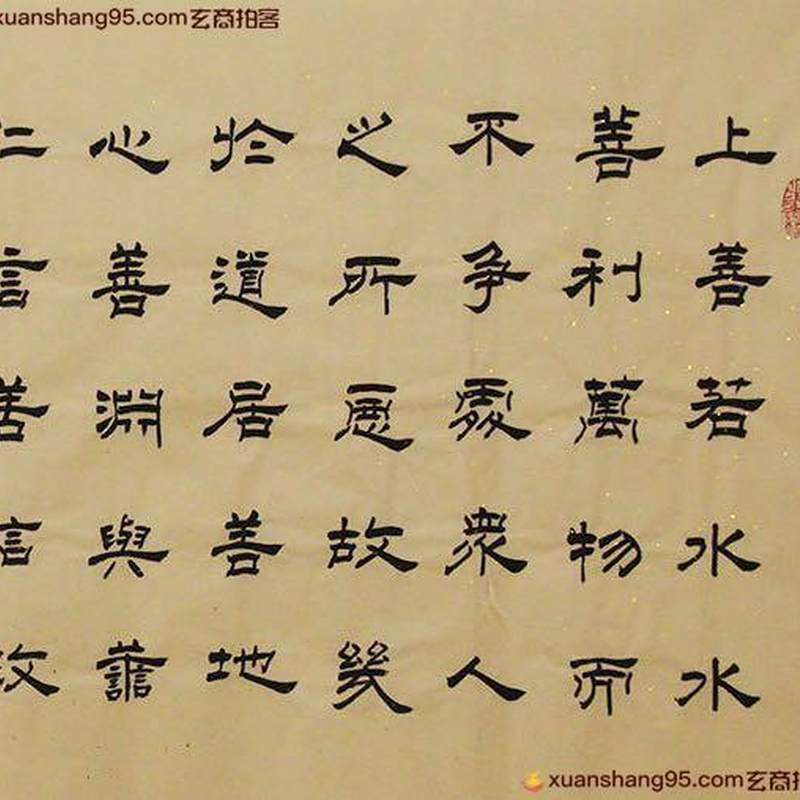 xuanshang95.com玄商拍客
上善若水水
善利萬物而
不争處衆人
之所惡故幾
於道居善地
心善淵與善
仁言善信政
xuanshang95.com玄商拍